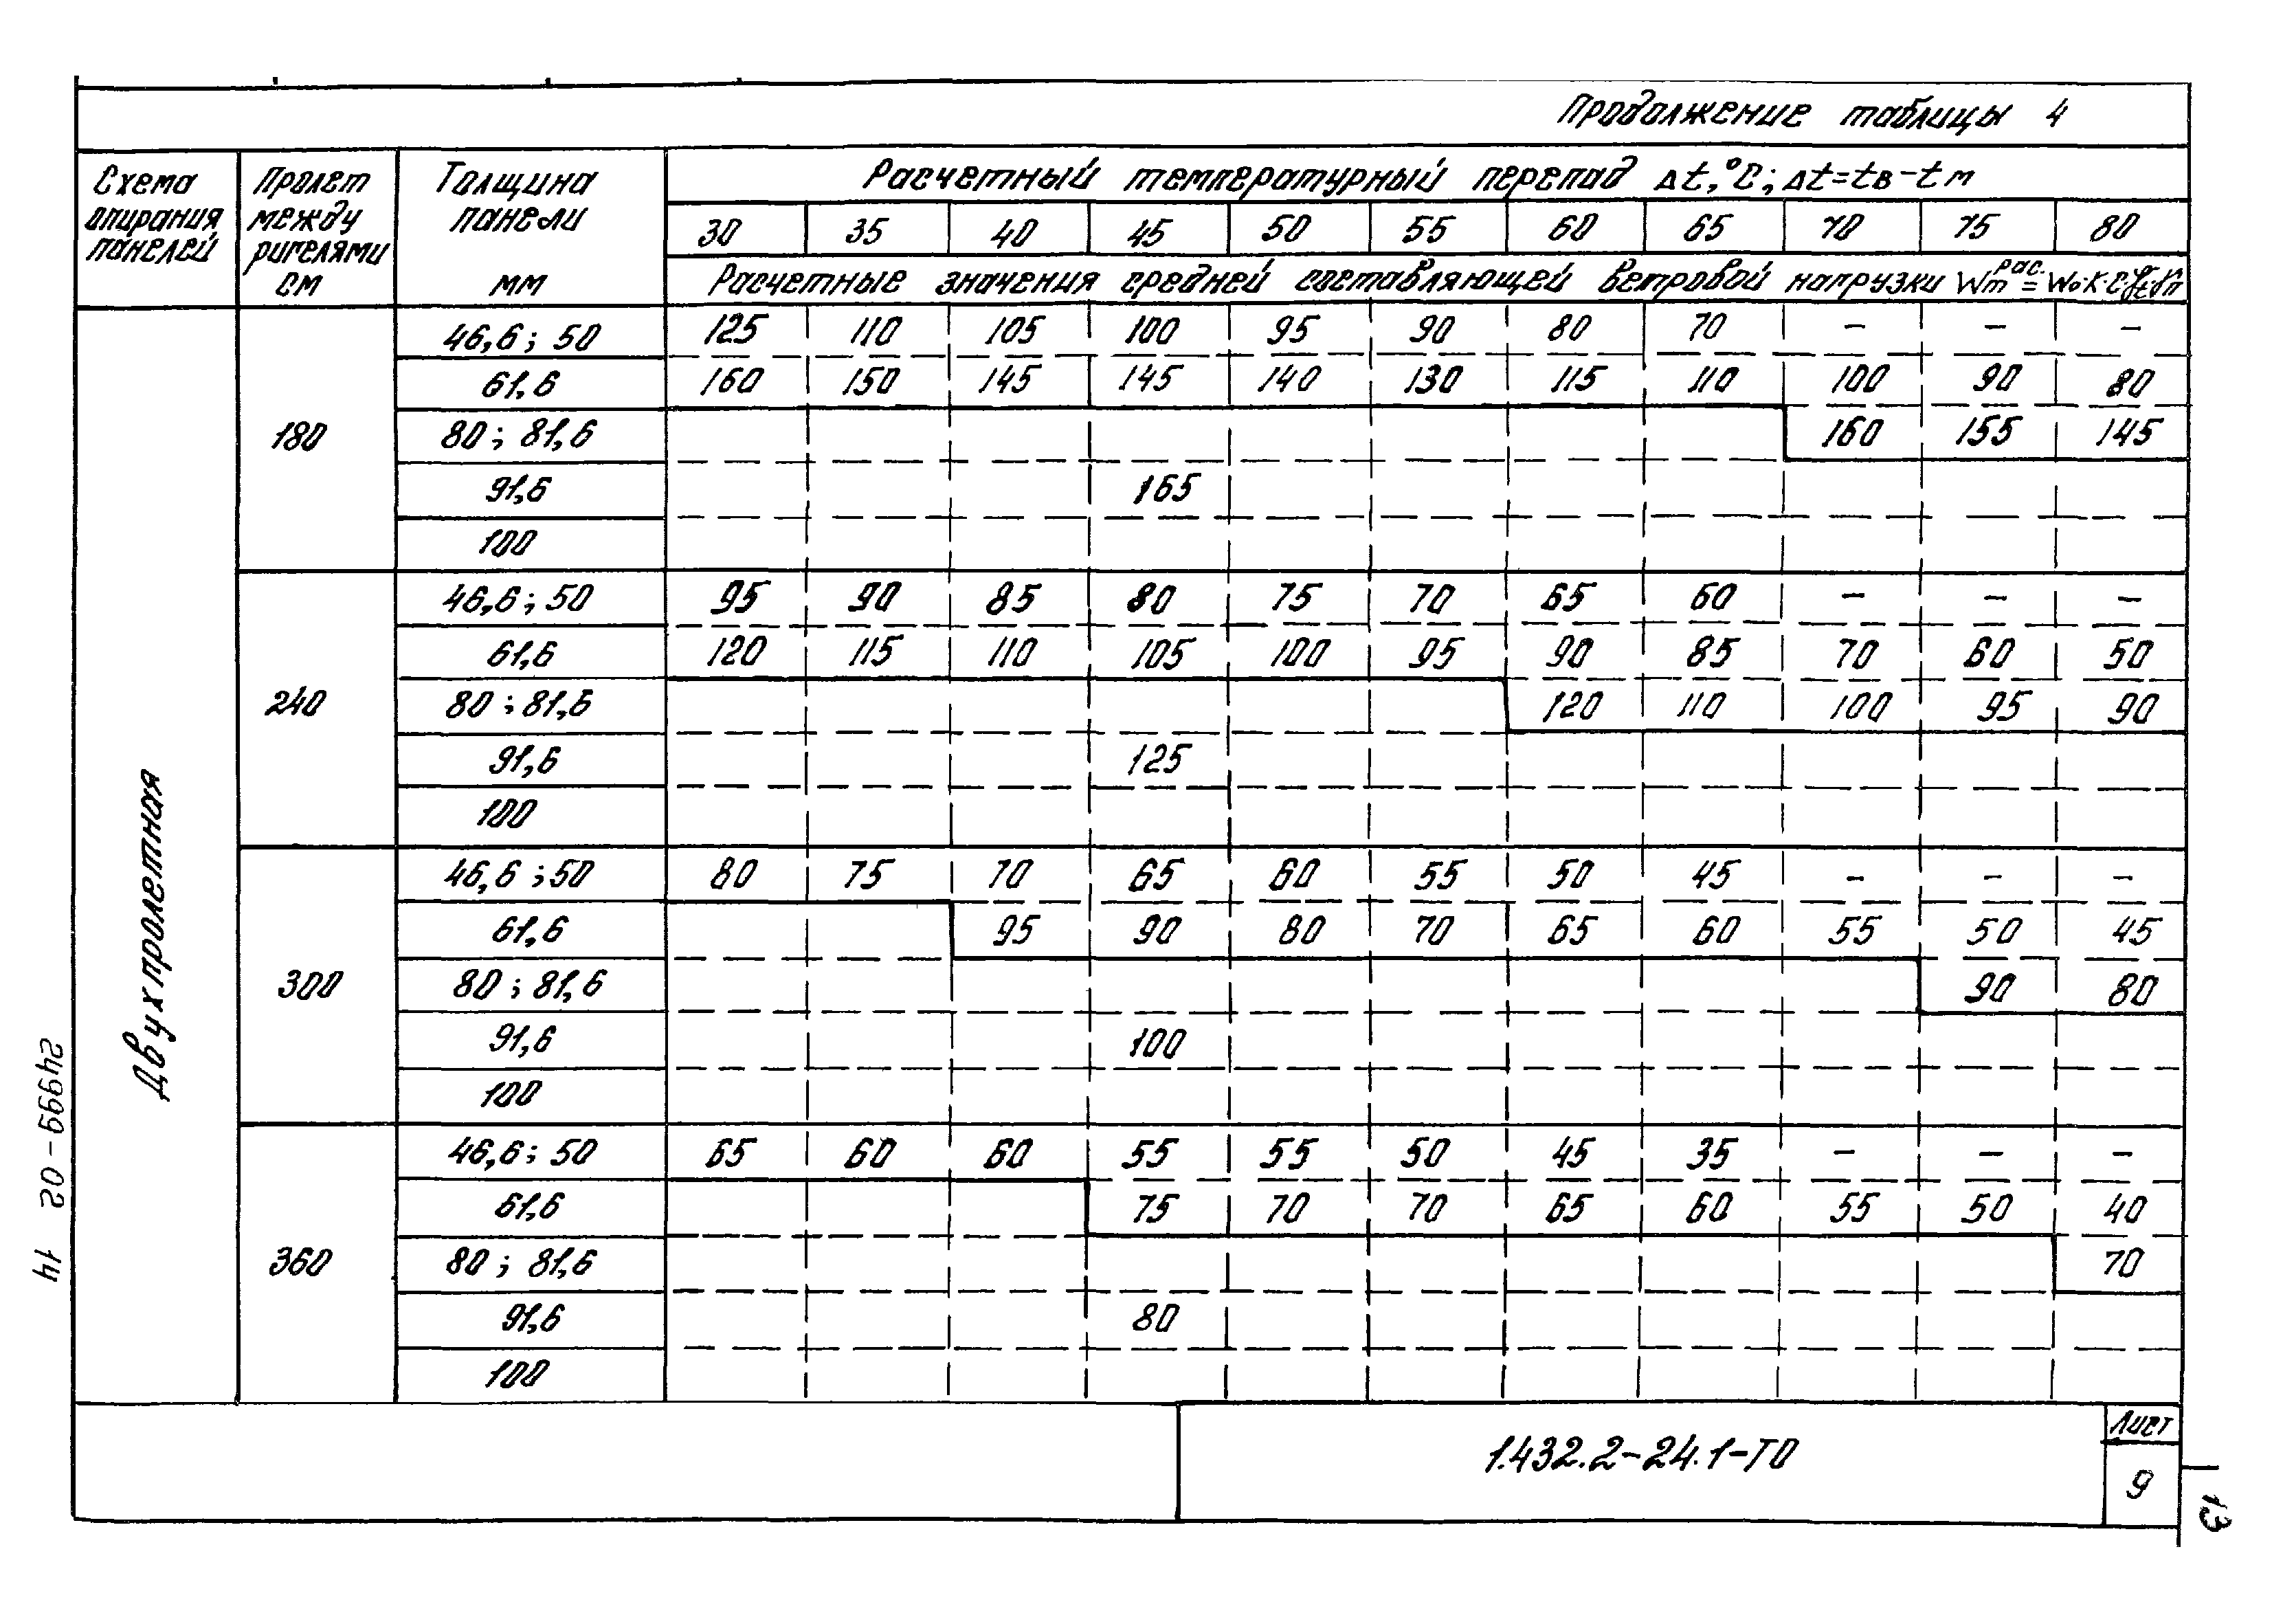 Продолжение таблицы 4
Схема опирания панелей
Пролет между ригелями см
Толщина панели мм
Расчетный температурный перепад Δt,°С; Δt=tв-tм
30 35 40 45 50 55 60 65 70 75 80
Расчетные значения средней составляющей ветровой нагрузки
Двухпролетная
180
46,6; 50 125 110 105 100 95 90 80 70 - - -
61,6 160 150 145 145 140 130 115 110 100 90 80
80; 81,6 160 155 145
91,6 165
100
240
46,6; 50 95 90 85 80 75 70 65 60 - - -
61,6 120 115 110 105 100 95 90 85 70 60 50
80; 81,6 120 110 100 95 90
91,6 125
100
300
46,6; 50 80 75 70 65 60 55 50 45 - - -
61,6 95 90 80 70 65 60 55 50 45
80; 81,6 90 80
91,6 100
100
360
46,6; 50 65 60 60 55 55 50 45 35 - - -
61,6 75 70 70 65 60 55 50 40
80; 81,6 70
91,6 80
100
1.432.2-24.1-ТО
Лист
9
13
24999-02 14